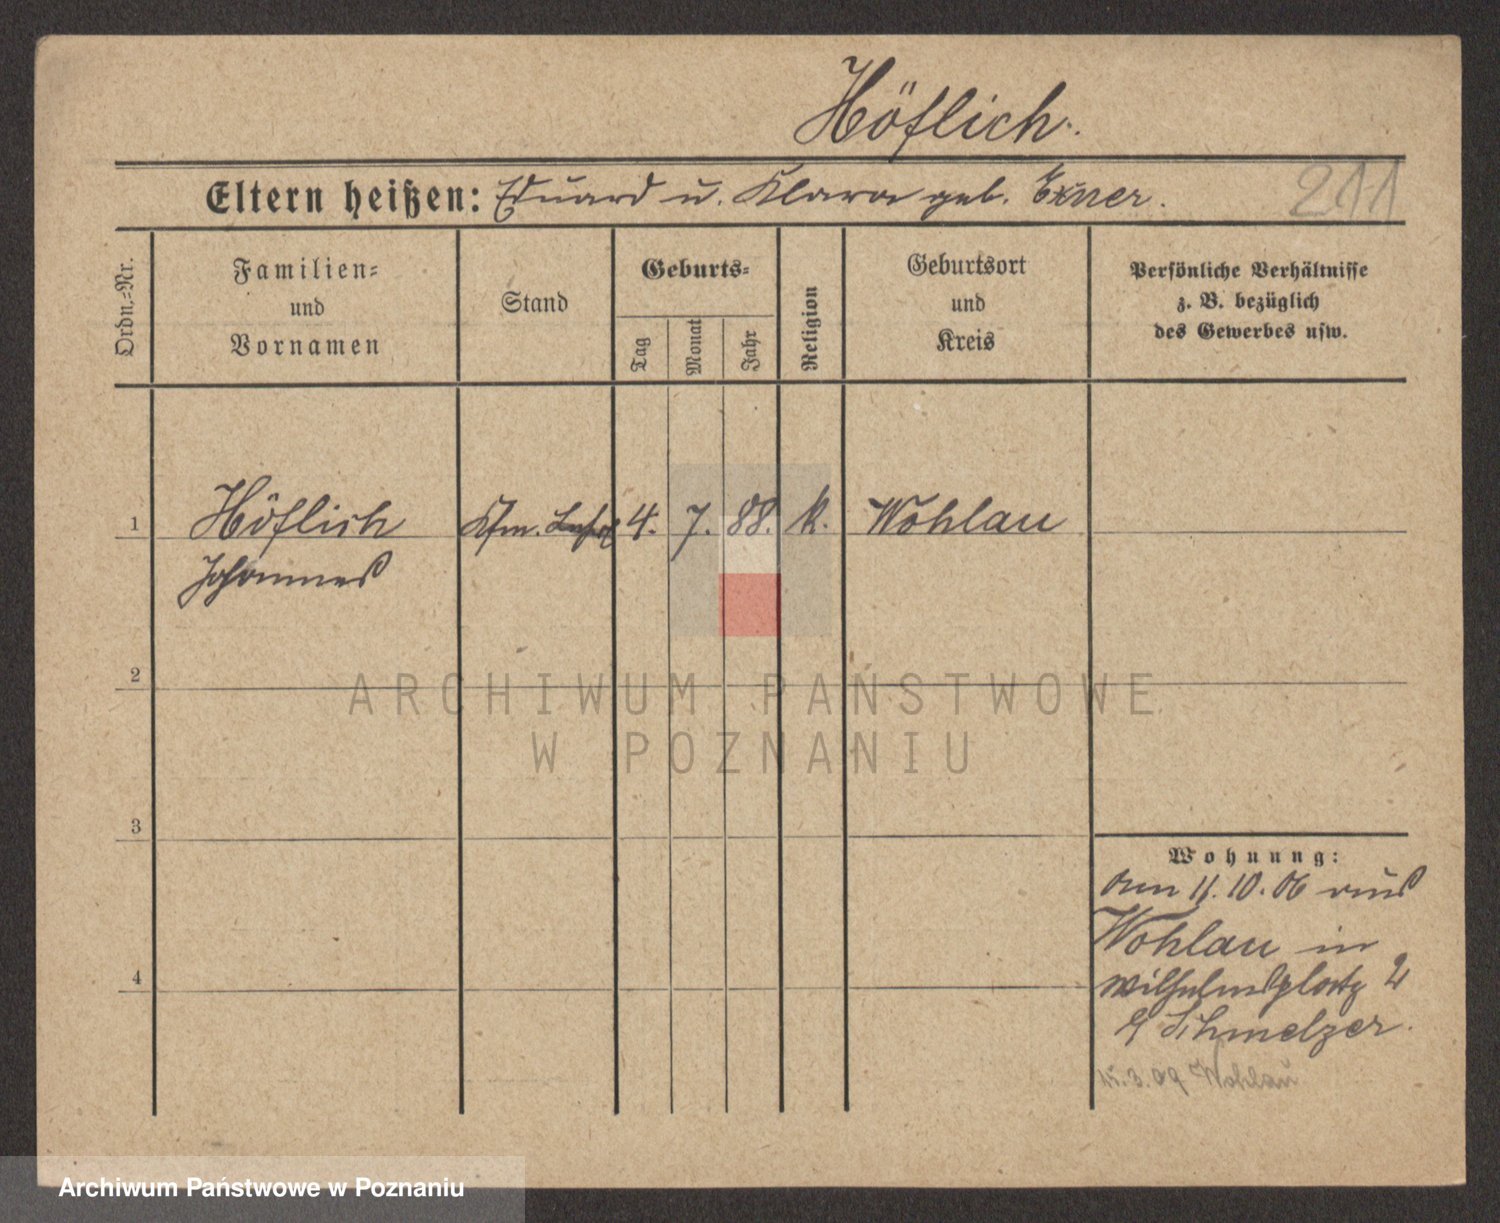 Höflich.
Eltern heißen: Eduard u. Klara geb. Exner.
211
Ordn.=Nr.
Familien=
und
Vornamen
Stand
Geburts=
Tag
Monat
Jahr
Religion
Geburtsort
und
Kreis
Persönliche Verhältnisse
z. B. bezüglich
des Gewerbes usw.
1
Höflich
Johannes
Kfm.
4. 7. 88. k. Wohlau
2
ARCHIWUM PAŃSTWOWE
W POZNANIU
3
Wohnung:
am 11.10.06 aus
Wohlau in
Wilhelmsplatz 2
b/ Schmelzer.
4
15.3.09 Wohlau
Archiwum Państwowe w Poznaniu